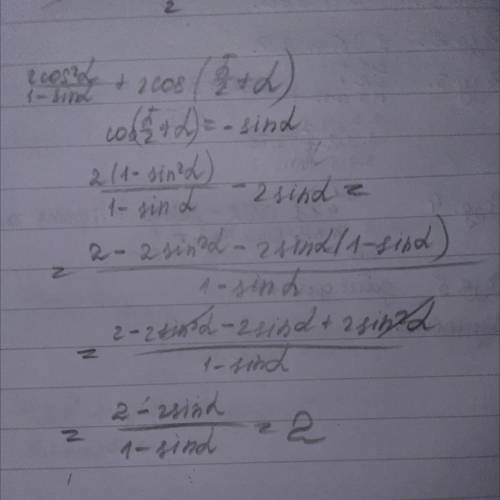 2
2cos²α/(1-sinα) + 2cos(π/2+α)
cos(π/2+α)=-sinα
2(1-sin²α)/(1-sinα) - 2sinα =
= (2-2sin²α-2sinα(1-sinα))/(1-sinα)
= (2-2sin²α-2sinα+2sin²α)/(1-sinα)
= (2-2sinα)/(1-sinα) = 2